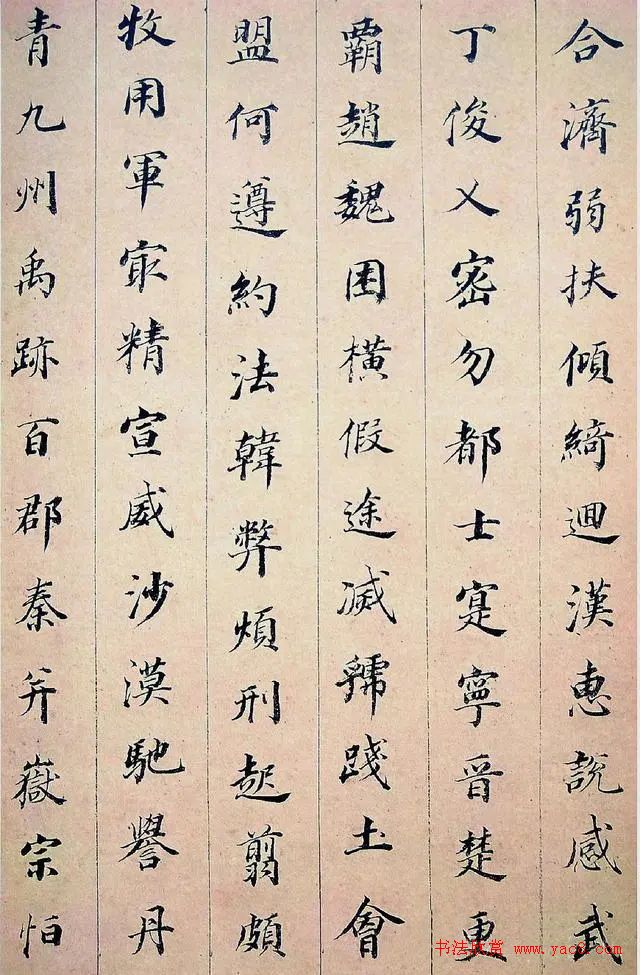 合濟弱扶傾綺迴漢惠說感武
丁俊乂密勿都士寔寧晉楚更
霸趙魏困橫假途滅虢踐土會
盟何遵約法韓弊煩刑起翦頗
牧用軍冣精宣威沙漠馳譽丹
青九州禹跡百郡秦并嶽宗怕
书法欣赏 www.yac8.com